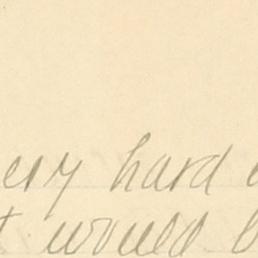 ery hard
t would b